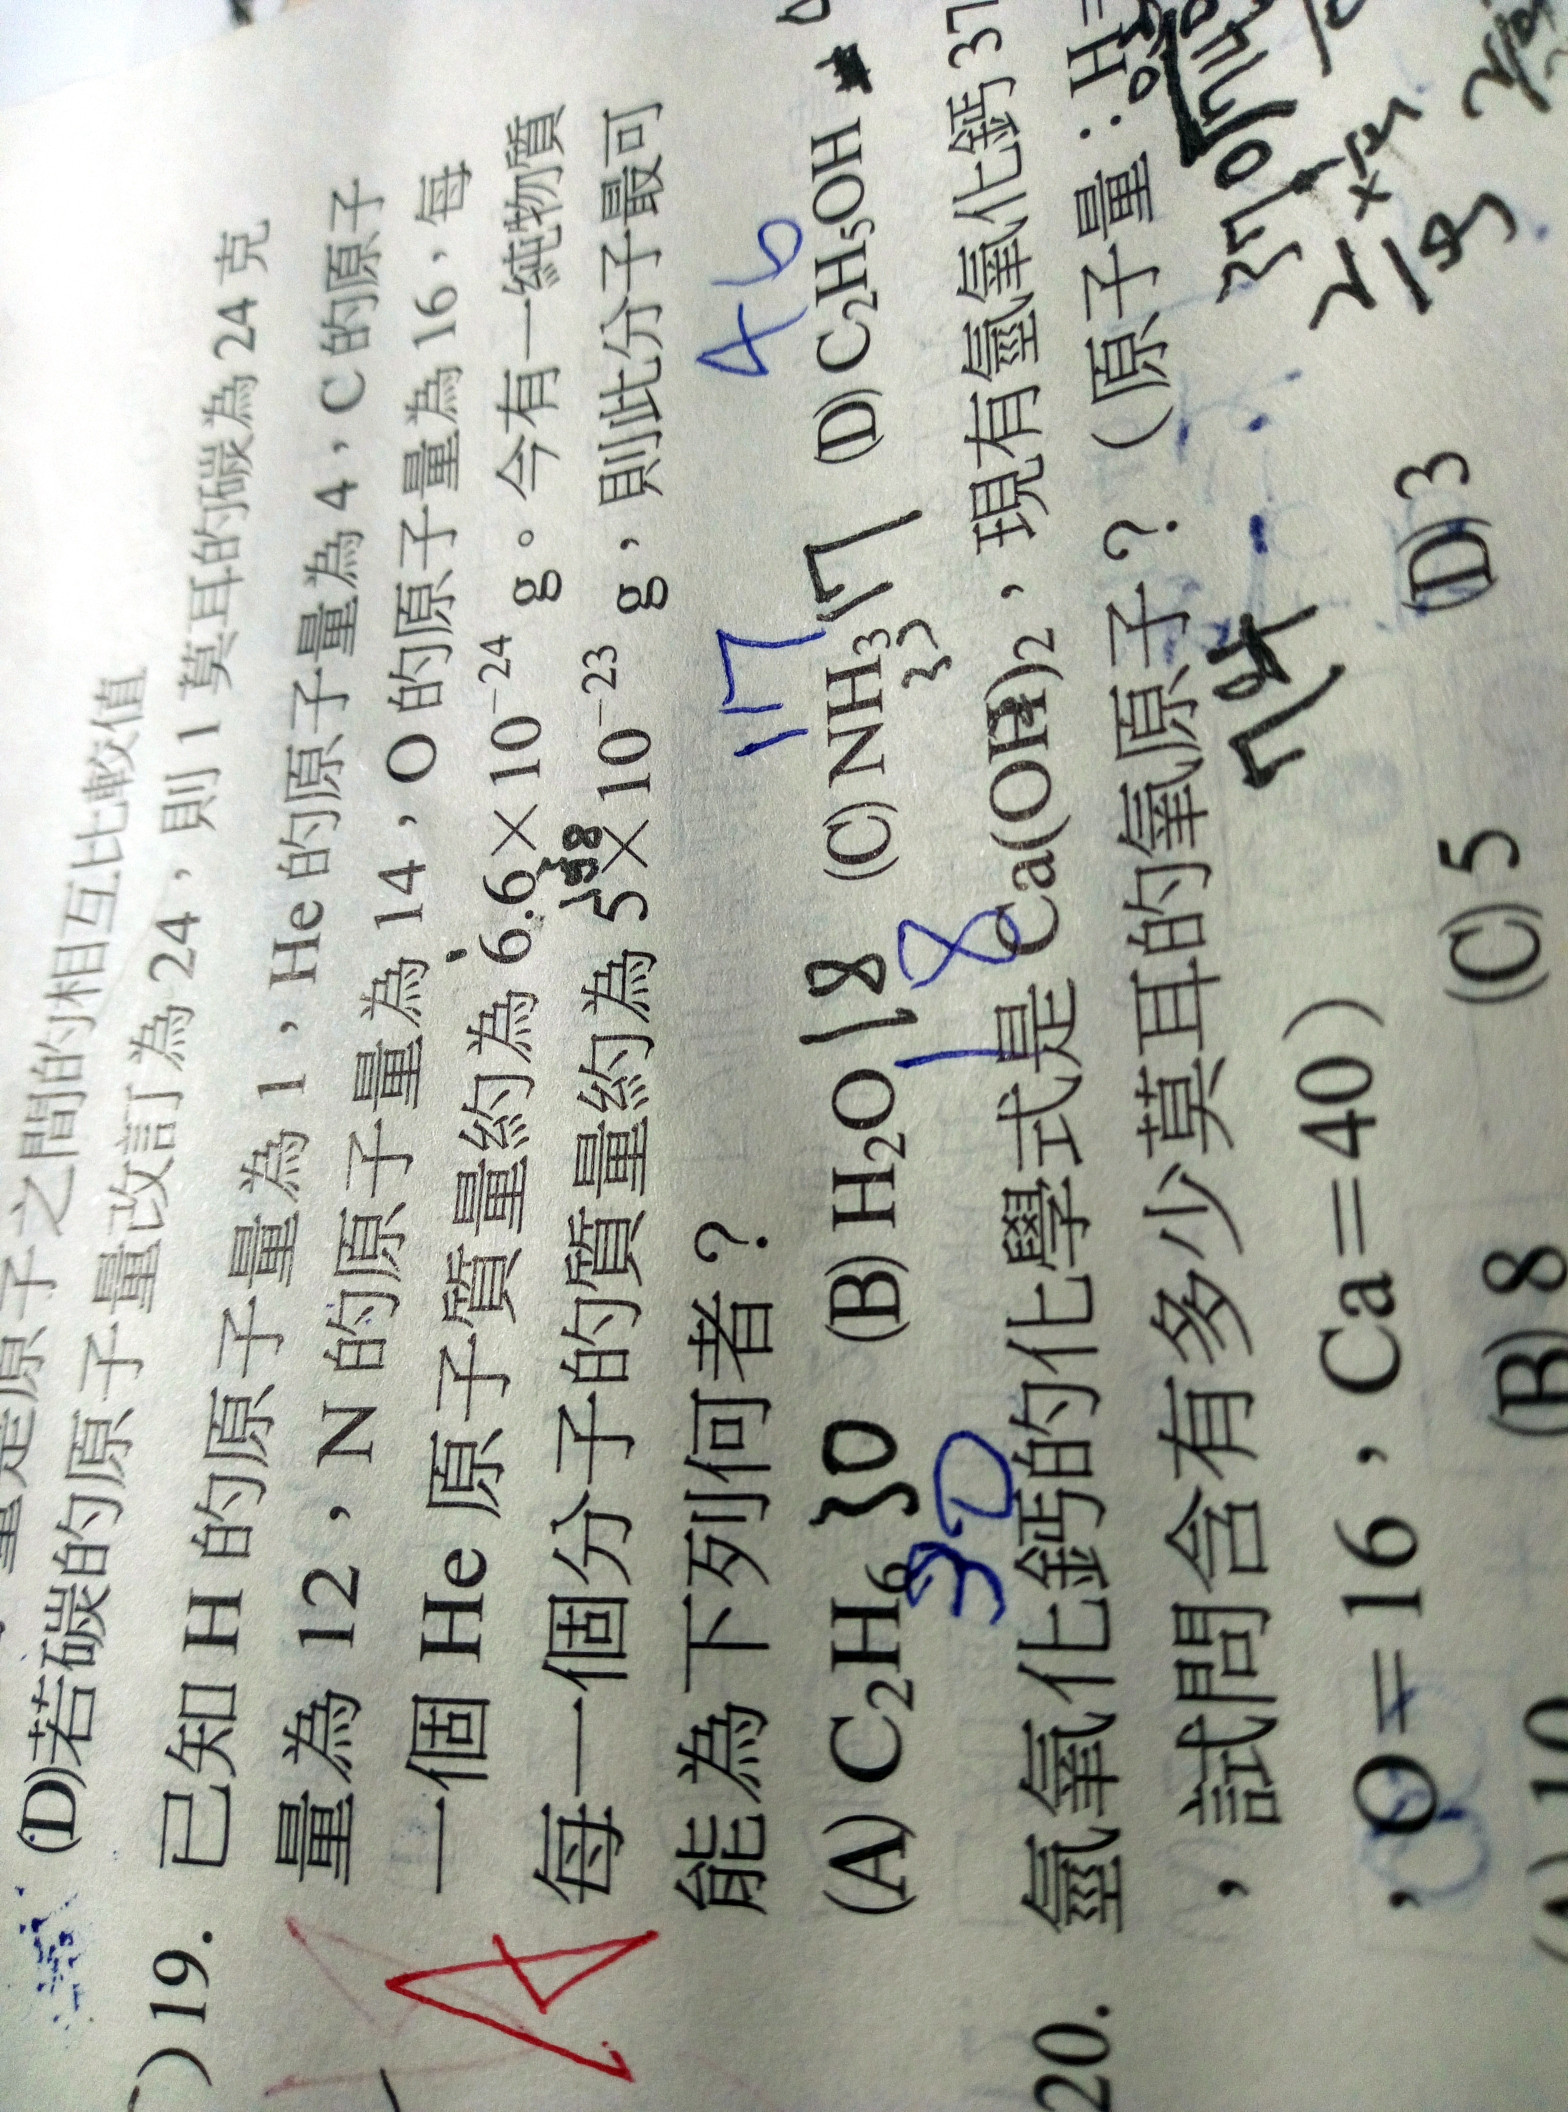 量是原子之間的相互比較值
(D)若碳的原子量改訂為 24,則 1 莫耳的碳為 24 克
)19. 已知 H 的原子量為 1,He 的原子量為 4,C 的原子
量為 12,N 的原子量為 14,O 的原子量為 16,每
一個 He 原子質量約為 6.6×10⁻²⁴ g。今有一純物質
每一個分子的質量約為 5×10⁻²³ g,則此分子最可
能為下列何者?
17 46
(A) C₂H₆ 30 (B) H₂O 18 (C) NH₃ 17 (D) C₂H₅OH
30 18
20. 氫氧化鈣的化學式是 Ca(OH)₂,現有氫氧化鈣 37
,試問含有多少莫耳的氧原子?(原子量:H=
74
,O=16,Ca=40)
(A) 10 (B) 8 (C) 5 (D) 3